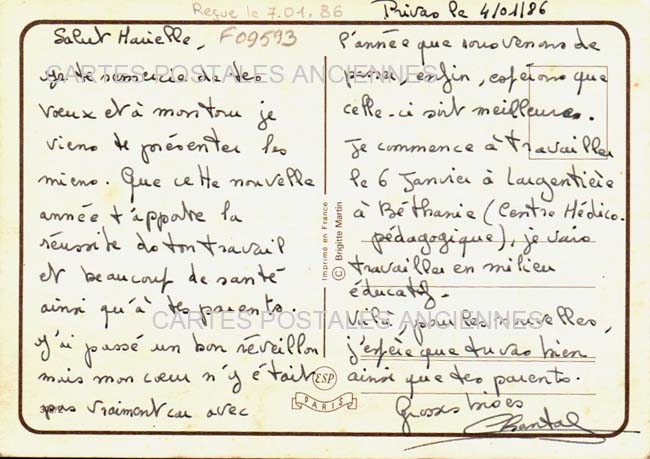 Reçue le 7.01.86
Privas le 4/01/86
Salut Marielle,
F09593
Je te remercie de tes
vœux et à mon tour je
viens te présenter les
miens. Que cette nouvelle
année t'apporte la
réussite de ton travail
et beaucoup de santé
ainsi qu'à tes parents.
J'ai passé un bon réveillon
mais mon cœur n'y était
pas vraiment car avec
l'année que nous venons de
passer, enfin, espérons que
celle-ci soit meilleure.
Je commence à travailler
le 6 Janvier à Largentière
à Béthanie (Centre Médico-
pédagogique), je vais
travailler en milieu
éducatif.
Voilà, pour les nouvelles,
j'espère que tu vas bien
ainsi que tes parents.
Grosses bises
Chantal
CARTES POSTALES ANCIENNES
CARTES POSTALES ANCIENNES
Imprimé en France
© Brigitte Martin
ESP
PARIS